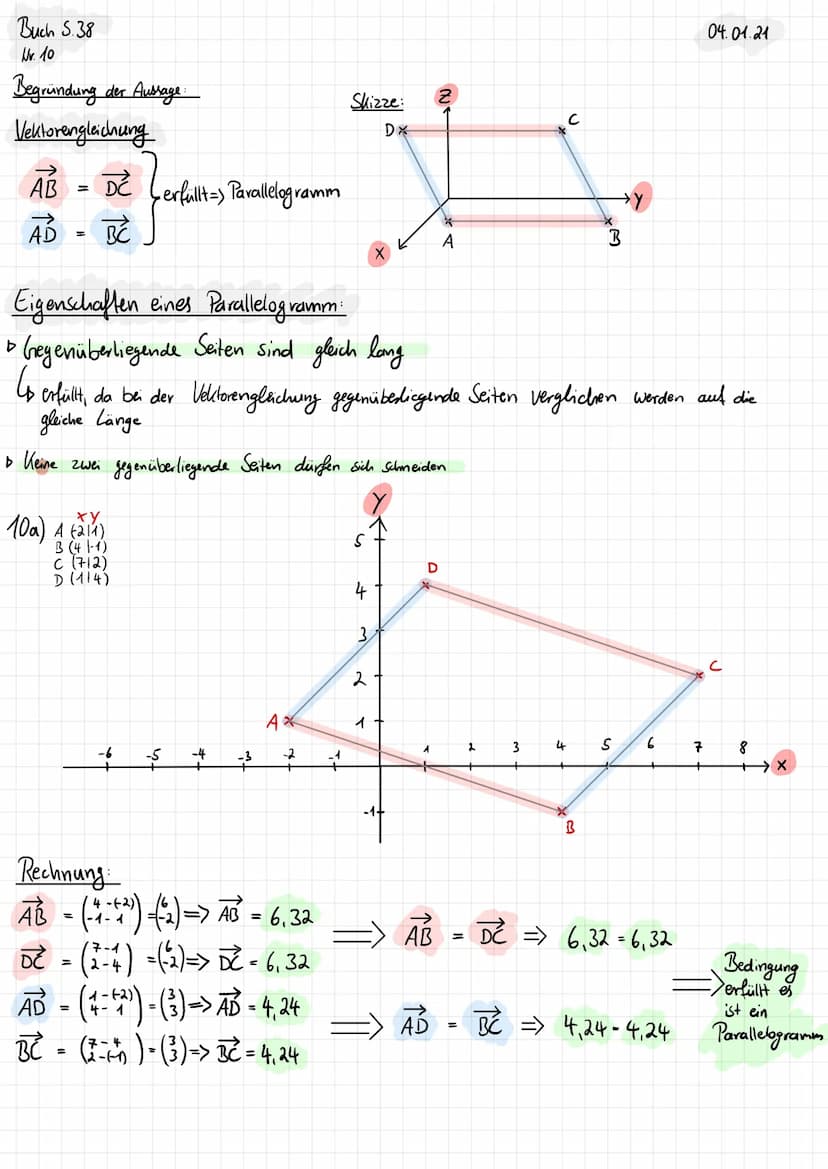 Buch S.38
04.01.21
Nr. 10
Begründung der Aussage:
Skizze:
Z
D
C
Vektorengleichung
AB = DC
AD = BC
} erfüllt => Parallelogramm
Y
A
B
X
Eigenschaften eines Parallelogramm:
▷ Gegenüberliegende Seiten sind gleich lang
↳ erfüllt, da bei der Vektorengleichung gegenüberliegende Seiten verglichen werden auf die
gleiche Länge
▷ Keine zwei gegenüberliegende Seiten dürfen sich schneiden
Y
10a)
x y
A (-2|1)
B (4|-1)
C (7|2)
D (1|4)
5
D
4
3
C
2
A
1
-6 -5 -4 -3 -2 -1 1 2 3 4 5 6 7 8
X
-1
B
Rechnung:
AB = (4-(-2) -1-1) = (6 -2) => AB = 6,32 => AB = DC => 6,32 = 6,32
DC = (7-1 2-4) = (6 -2) => DC = 6,32
AD = (1-(-2) 4-1) = (3 3) => AD = 4,24 => AD = BC => 4,24 = 4,24
BC = (7-4 2-(-1)) = (3 3) => BC = 4,24
=> Bedingung
erfüllt es
ist ein
Parallelogramm